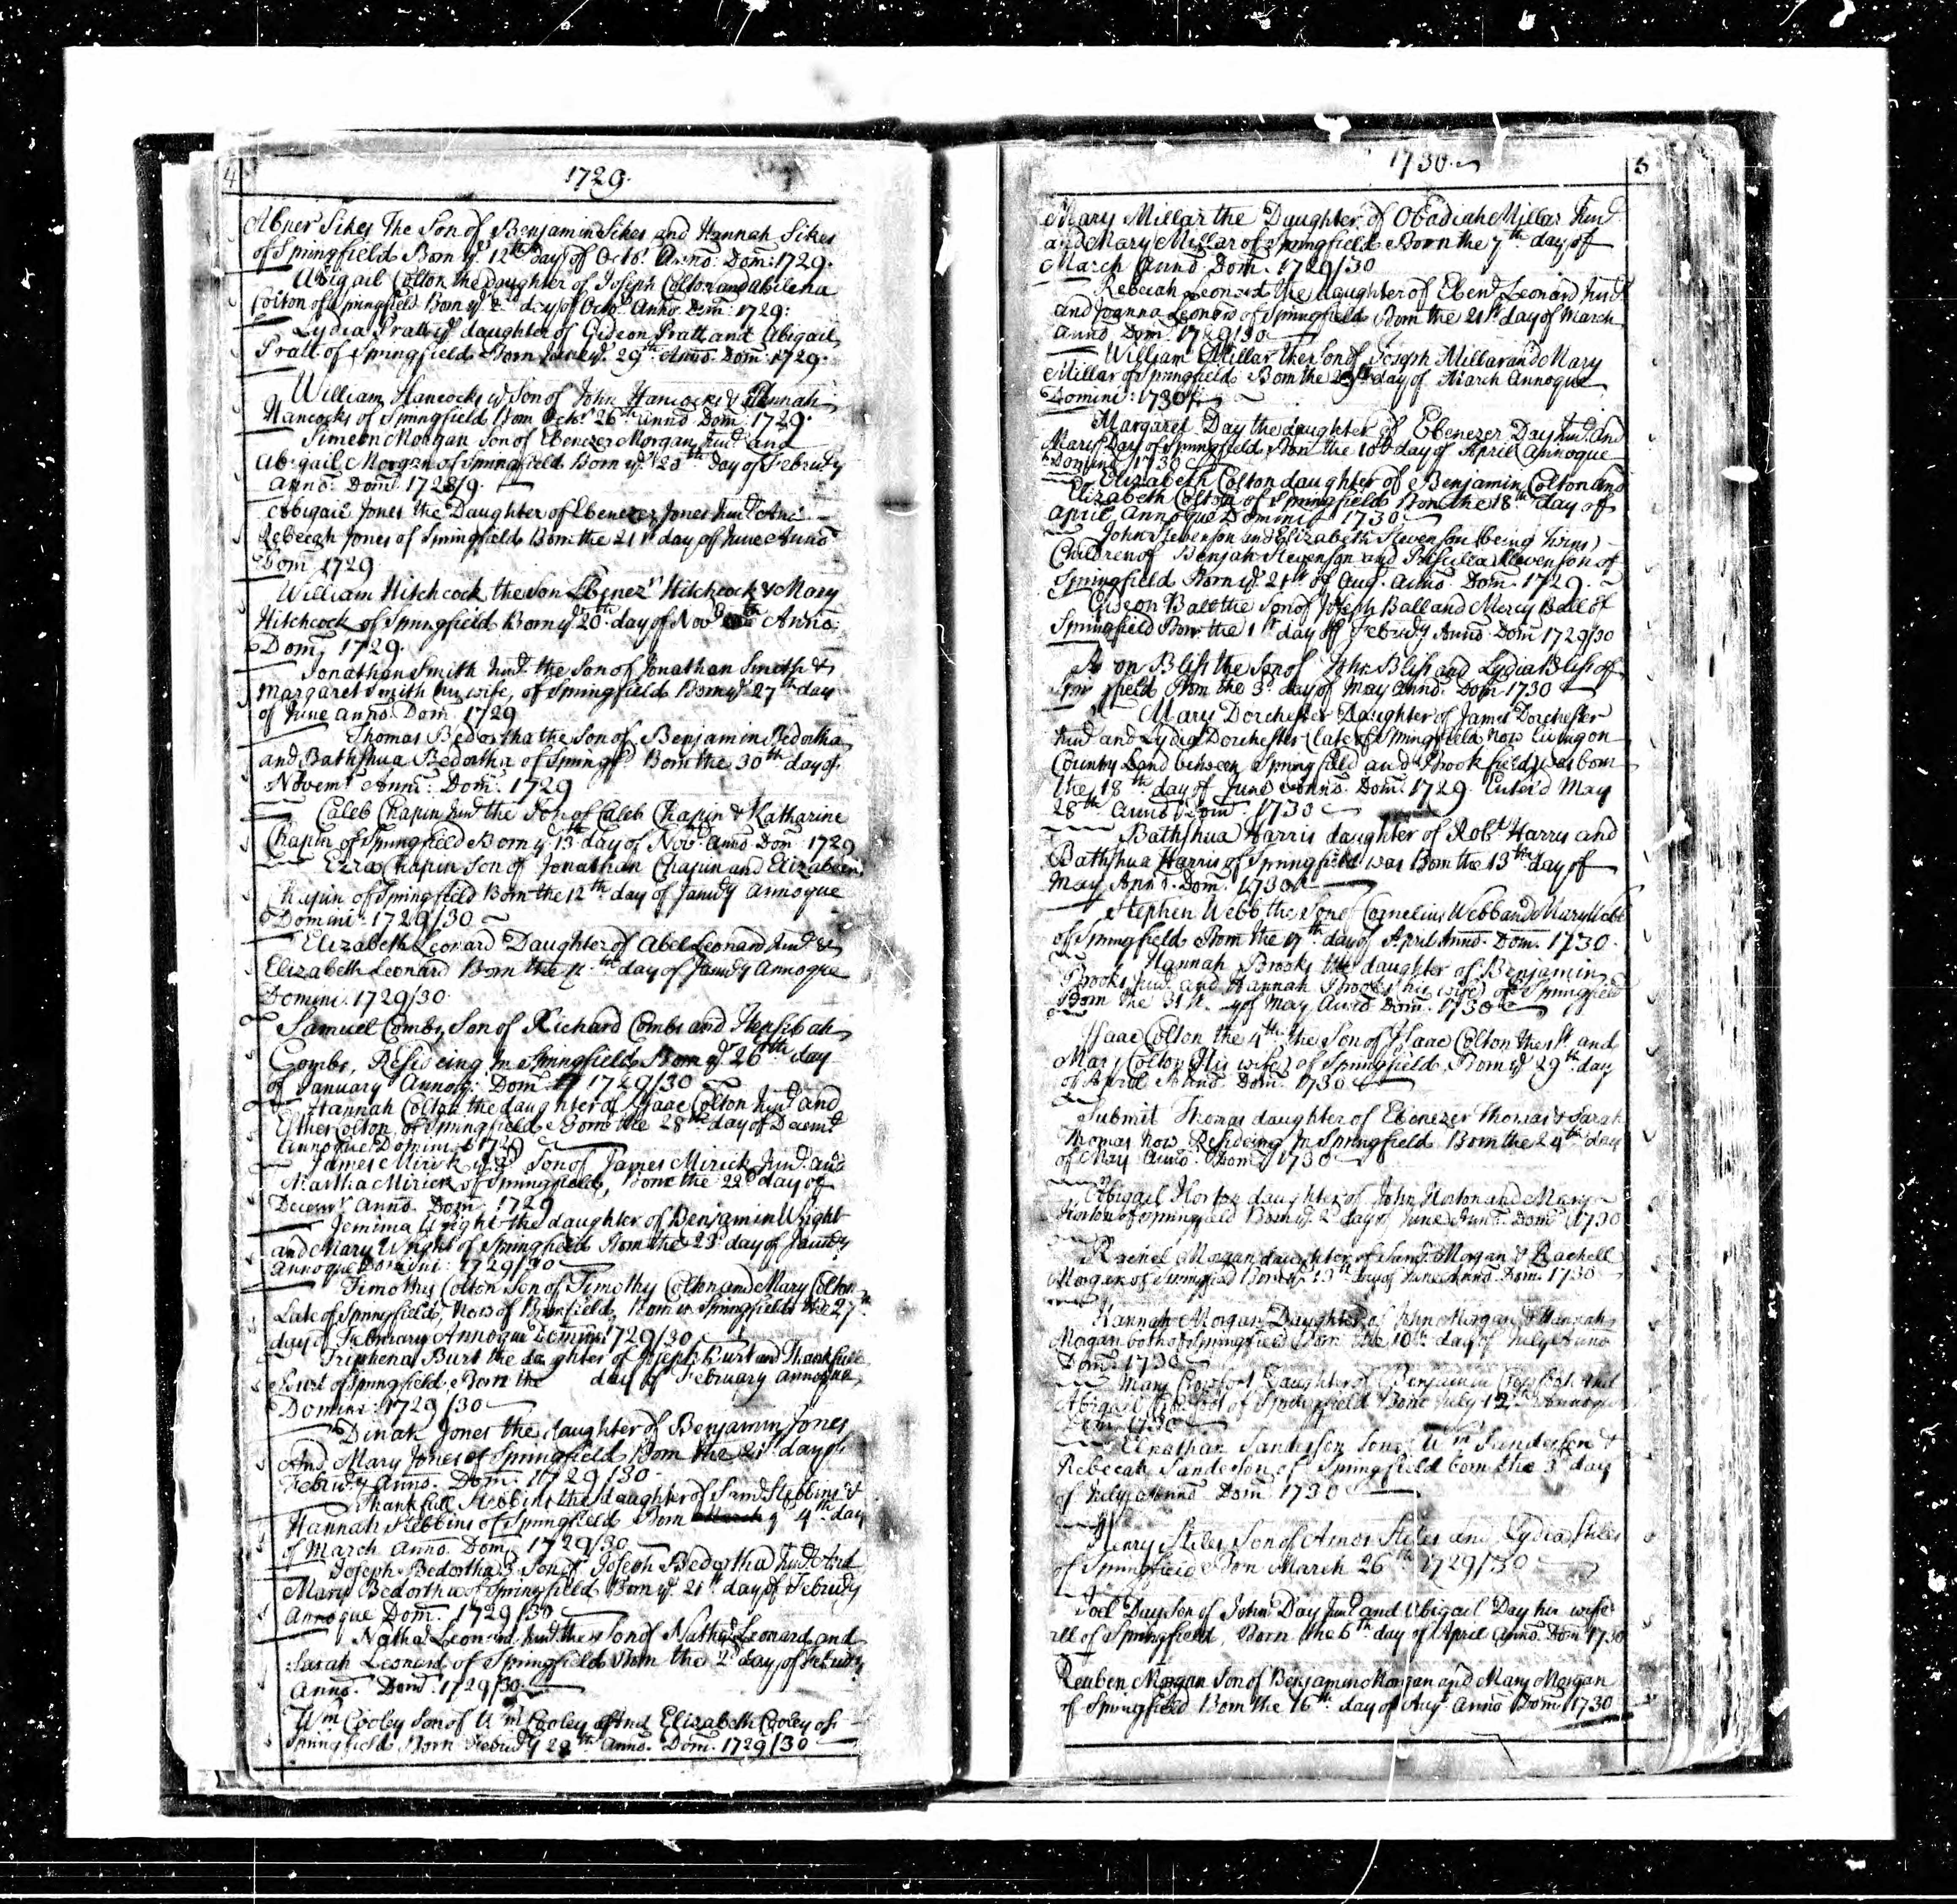 4
1729.
Abner Sikes The Son of Benjamin Sikes and Hannah Sikes
of Springfield Born ye. 12th day of Octo: Anno: Dom: 1729.
Abigail Colton the daughter of Joseph Colton and Abilena
Colton of Springfield Born ye 2d day of Octo. Anno. Dom: 1729:
Lydia Pratt ye daughter of Gideon Pratt and Abigail
Pratt of Springfield Born ye. 29th Anno. Dom: 1729.
William Hancocks ye Son of John Hancocks & Hannah
Hancocks of Springfield Born Octo. 26th Anno Dom: 1729.
Simeon Morgan Son of Ebenezer Morgan Junr. and
Abigail Morgan of Springfield Born ye day of Febru'y
Anno. Dom: 1728/9.
Abigail Jones the Daughter of Ebenezer Jones Junr. And
Rebecah Jones of Springfield Born the 21st day of June Anno
Dom 1729
William Hitchcock the Son Ebenezr Hitchcock & Mary
Hitchcock of Springfield Born ye 20th day of Novr Anno:
Dom, 1729.
Jonathan Smith Junr. the Son of Jonathan Smith &
Margaret Smith his wife, of Springfield Born ye 27th day
of June Anno. Dom. 1729
Thomas Bedortha the Son of Benjamin Bedortha
and Bathshua Bedortha of Springfd Born the 30th day of
Novemr Anno: Dom: 1729
Caleb Chapin Junr the Son of Caleb Chapin & Katharine
Chapin of Springfield Born ye 13th day of Novr. Anno Dom 1729
Ezra Chapin Son of Jonathan Chapin and Elizabeth
Chapin of Springfield Born the 12th day of Janu'y Annoque
Domini: 1729/30
Elizabeth Leonard Daughter of Abel Leonard Junr. &
Elizabeth Leonard Born the day of Janu'y Annoque
Domini. 1729/30.
Samuel Combs, Son of Richard Combs and Hepsibah
Combs, Resideing In Springfield Born ye 26th day
of January Annoq: Dom: 1729/30
Hannah Colton the daughter of Isaac Colton Junr. and
Esther Colton of Springfield Born the 28th day of Decemr
Annoque Domini 1729
James Mirick ye 3d Son of James Mirick Junr. and
Martha Mirick of Springfield, Born the 22d day of
Decemr Anno. Dom. 1729
Jemima Wright the daughter of Benjamin Wright
and Mary Wright of Springfield Born the 23d day of Janu'y
Annoque Domini: 1729/30
Timothy Colton Son of Timothy Colton and Mary Colton
Late of Springfield, Now of Brimfield, Born in Springfield the 27th
day of February Annoque Domini 1729/30
Triphena Burt the daughter of Joseph Burt and Thankfull
Burt of Springfield Born the day of February Annoque
Domini: 1729/30
Dinah Jones the daughter of Benjamin Jones
And Mary Jones of Springfield Born the 21st day of
Febru'y Anno. Dom: 1729/30.
Thankfull Stebbins the daughter of Saml Stebbins &
Hannah Stebbins of Springfield Born March ye 4th day
of March Anno. Dom, 1729/30
Joseph Bedortha 3d Son of Joseph Bedortha Junr. And
Mary Bedortha of Springfield Born ye 21st day of Febru'y
Annoque Dom. 1729/30
Nathal Leonard Junr. the Son of Nathal Leonard and
Sarah Leonard of Springfield Born the 2d day of Febru'y
Anno. Dom: 1729/30.
Wm Cooley Son of Wm Cooley And Elizabeth Cooley of
Springfield Born Febru'y th Anno. Dom. 1729/30
1730.
5
Mary Millar the Daughter of Obadiah Millar Junr.
and Mary Millar of Springfield Born the 7th day of
March Anno Dom. 1729/30
Rebecah Leonard the daughter of Ebenr Leonard Junr.
and Joanna Leonard of Springfield Born the 21st day of March
Anno Dom. 1729/30
William Millar the Son of Joseph Millar and Mary
Millar of Springfield Born the day of March Annoque
Domini: 1730
Margaret Day the daughter of Ebenezer Day Junr. and
Mary Day of Springfield Born the 10th day of April Annoque
Domini 1730
Elizabeth Colton daughter of Benjamin Colton and
Elizabeth Colton of Springfield Born the 18th day of
April Annoque Domini 1730
John Stevenson and Elizabeth Stevenson (being twins)
Children of Benjah Stevenson and Prisulla Stevenson of
Springfield Born ye. 21st of Aug. Anno. Dom. 1729.
Gideon Ball the Son of Joseph Ball and Mercy Ball of
Springfield Born the 1st day of Febru'y Anno Dom 1729/30
on Blish the Son of John Blish and Lydia Blish of
field Born the 3d day of May Anno. Dom 1730
Mary Dorchester Daughter of James Dorchester
Junr and Lydia Dorchester (late of Springfield now living on
Country Land between Springfield and Brookfield) was born
the 18th day of June Anno. Dom. 1729. Enter'd May
28th Anno Dom. 1730
Bathshua Harris daughter of Robt Harris and
Bathshua Harris of Springfield was Born the 13th day of
May Anno. Dom. 1730
Stephen Webb the Son of Cornelius Webb and Mary Webb
of Springfield Born the 17th day of April Anno. Dom. 1730.
Hannah Brooks the daughter of Benjamin
Brooks Junr. and Hannah Brooks (his wife) of Springfield
Born the 31st of May Anno. Dom. 1730
Isaac Colton the 4th the Son of Isaac Colton the and
Mary Colton (His wife) of Springfield, Born ye 29th day
of April Anno. Dom. 1730
Submit Thomas daughter of Ebenezer Thomas & Sarah
Thomas now Resideing In Springfield Born the 24th day
of May Anno. Dom 1730
Abigail Horton daughter of John Horton and Mary
Horton of Springfield Born ye. 2d day of June Anno. Dom. 1730
Rachel Morgan daughter of Saml. Morgan & Rachell
Morgan of Springfield Born ye 13th day of June Anno. Dom. 1730
Hannah Morgan Daughter of John Morgan & Hannah
Morgan both of Springfield Born the 10th day of July Anno
Dom. 1730
Mary Crowfoot Daughter of Benjamin and
Abigail Crowfoot of Springfield Born July 12th Annoque
Dom. 1730
Elnathan Sanderson Son of Wm Sanderson &
Rebecah Sanderson of Springfield born the 3d day
of July Anno Dom 1730
Henry Stiles Son of Amos Stiles and Lydia Stiles
of Springfield Born March 26th 1729/30
Joel Day Son of John Day Junr. and Abigail Day his wife
all of Springfield, Born the 6th day of April Anno. Dom 1730
Reuben Morgan Son of Benjamin Morgan and Mary Morgan
of Springfield Born the 16th day of Augt. Anno Dom: 1730